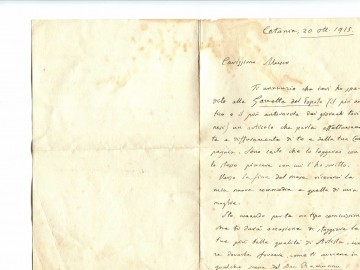 Catania, 20 ott. 1915.
Carissimo Musco
Ti annunzio che ieri ho spe-
dito alla Gazzetta del Popolo (il più an-
tico e il più autorevole dei giornali tori-
nesi) un articolo che parla affettuosamen-
te e diffusamente di te e della tua Com-
pagnia. Sono certo che lo leggerai con
lo stesso piacere con cui l'ho scritto.
Verso la fine del mese riceverai la
mia nuova commedia e quella di mia
moglie.
Sto creando per te un tipo comicissimo
che ti darà occasione di sfoggiare la
tua più belle qualità di Artista, e
ne dovrebbe
qualche cosa del